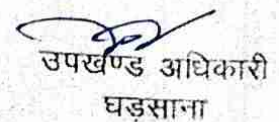 उपखण्ड अधिकारी
घड़साना